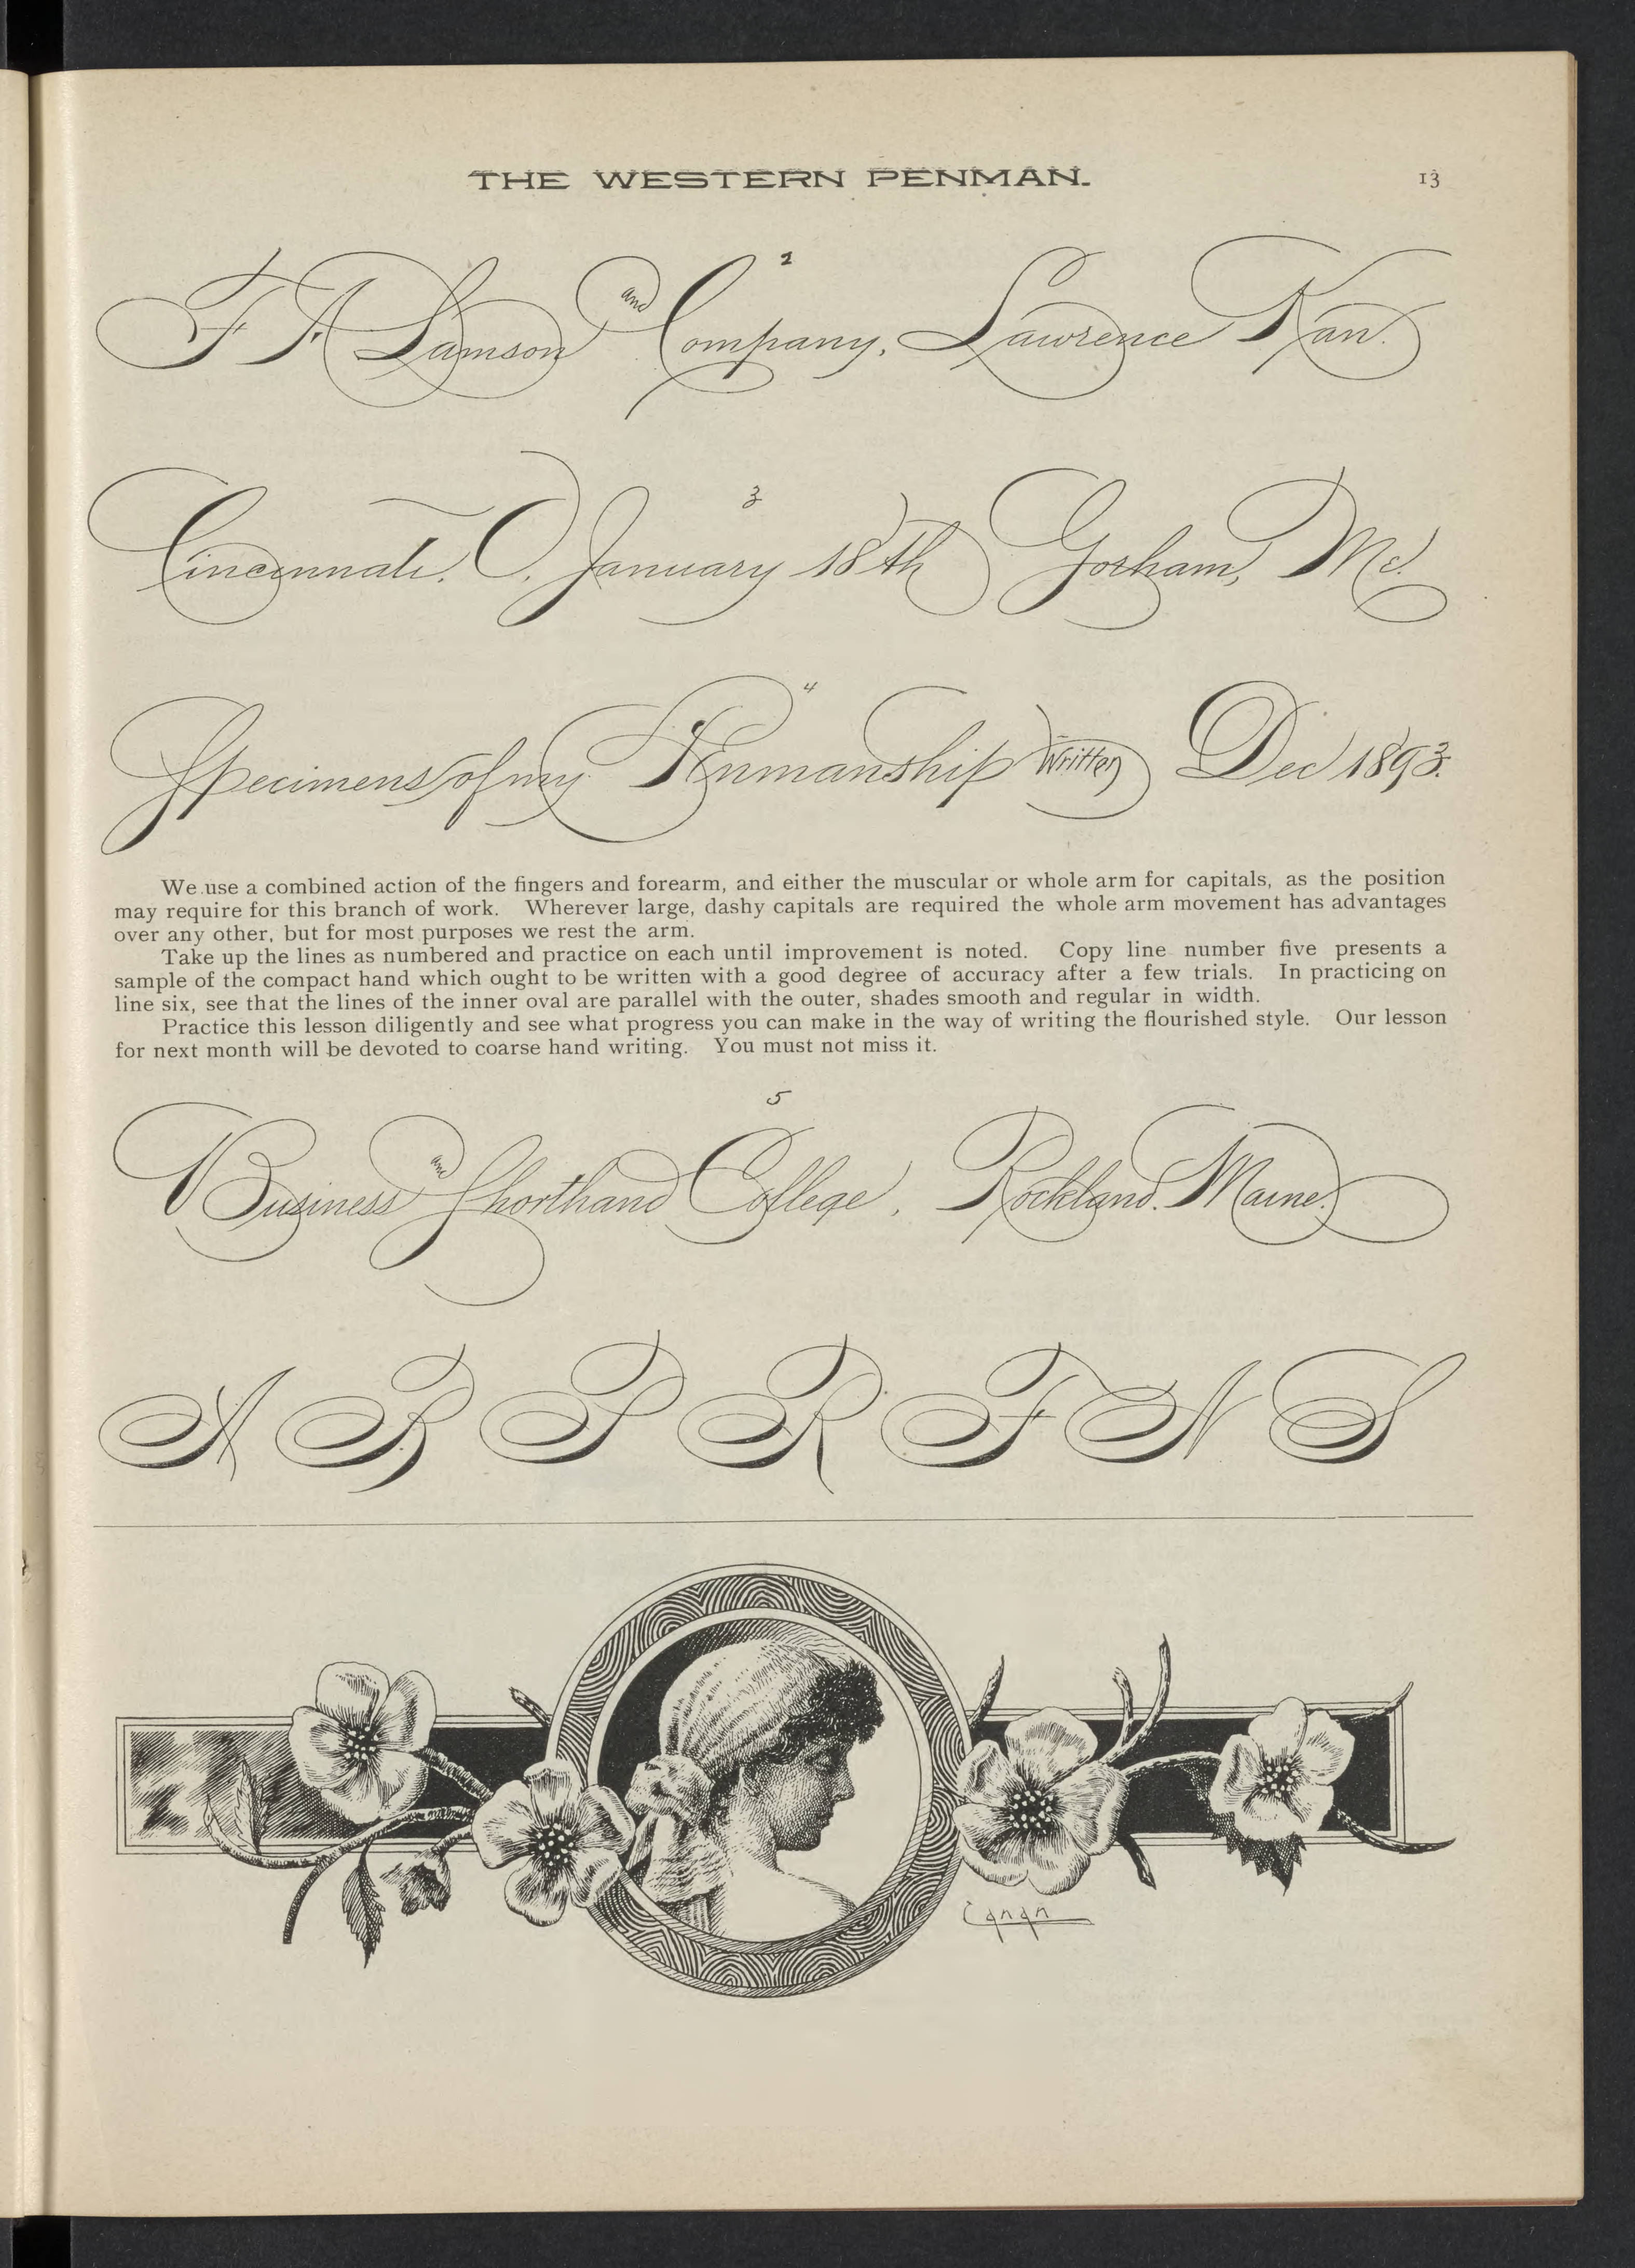 THE WESTERN PENMAN.
13
2
F A Lamson and Company, Lawrence Kan.
3
Cincinnati, O, January 18th Gorham, Me.
4
Specimens of my Penmanship Written Dec 1893.
We use a combined action of the fingers and forearm, and either the muscular or whole arm for capitals, as the position
may require for this branch of work. Wherever large, dashy capitals are required the whole arm movement has advantages
over any other, but for most purposes we rest the arm.
Take up the lines as numbered and practice on each until improvement is noted. Copy line number five presents a
sample of the compact hand which ought to be written with a good degree of accuracy after a few trials. In practicing on
line six, see that the lines of the inner oval are parallel with the outer, shades smooth and regular in width.
Practice this lesson diligently and see what progress you can make in the way of writing the flourished style. Our lesson
for next month will be devoted to coarse hand writing. You must not miss it.
5
Business and Shorthand College, Rockland, Maine.
A B P R F N S
Canan